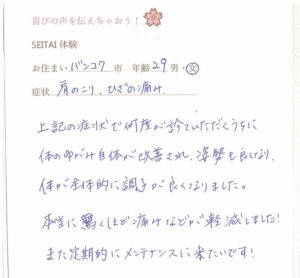 喜びの声を伝えちゃおう!
SEITAI 体験
お住まい バンコク 市 年齢 29 男・女
症状 肩のこり、ひざの痛み
上記の症状で何度か診ていただくうちに
体のゆがみ自体が改善され、姿勢も良くなり、
体が全体的に調子が良くなりました。
本当に驚くほど痛みなどが軽減しました!
また定期的にメンテナンスに来たいです!